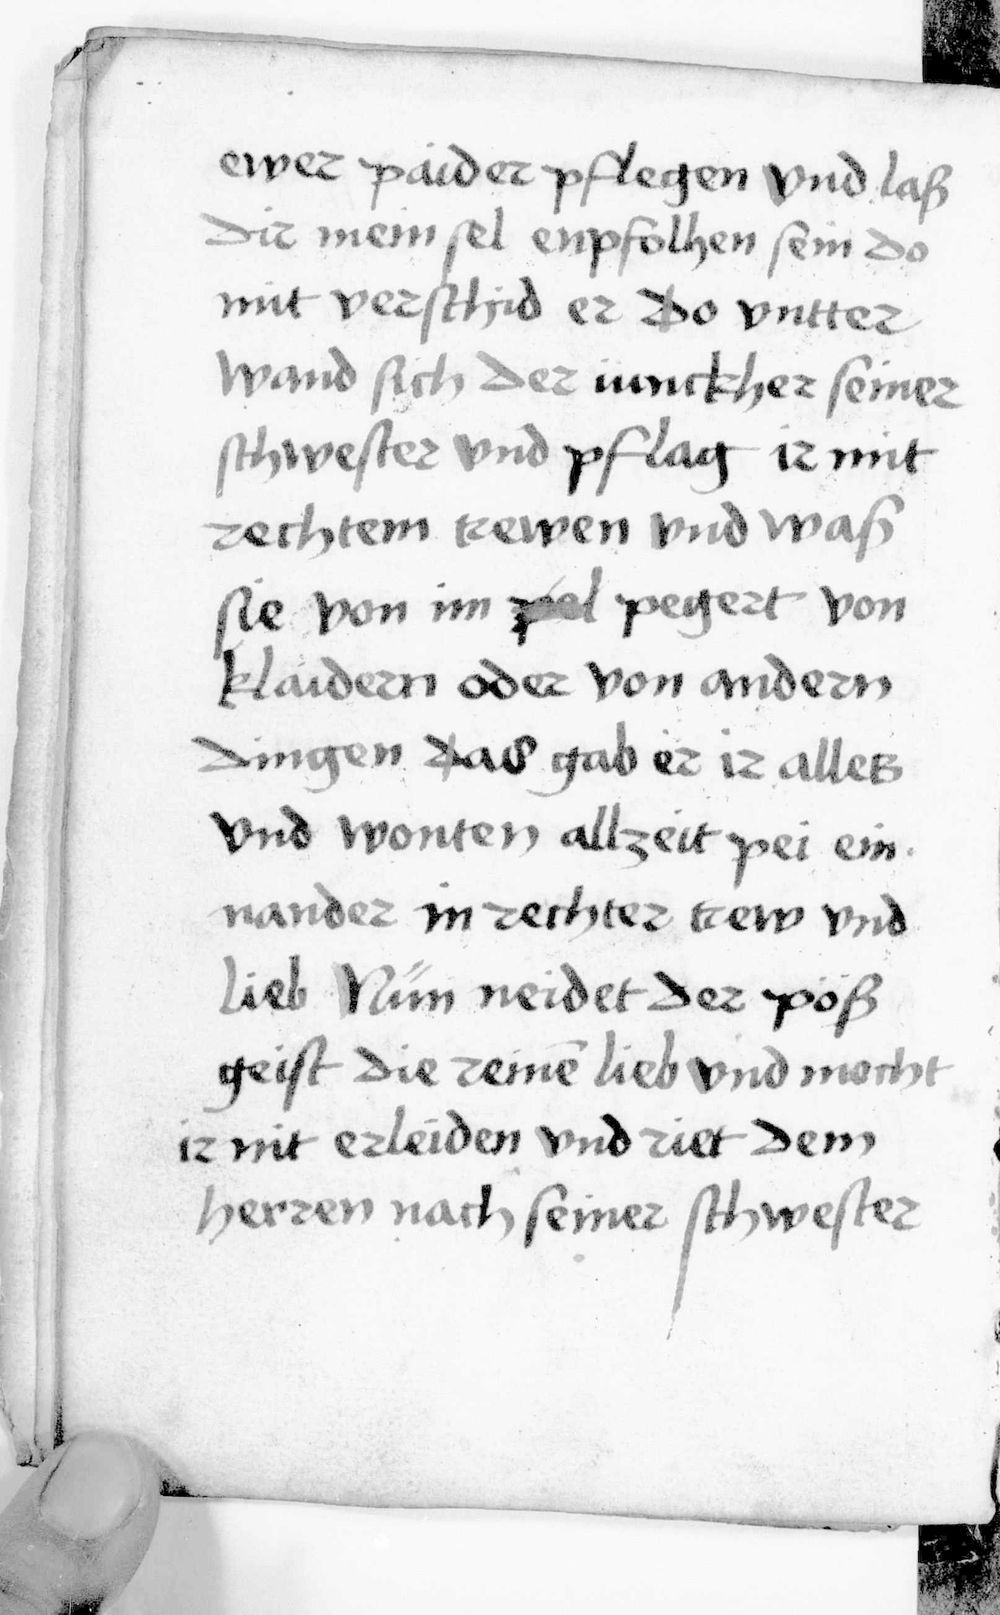 ewer paider pflegen vnd laß
dir mein sel enpfolhen sein do
mit verschid er Do vntter
wand sich der iunckher seiner
schwester vnd pflag ir mit
rechtem trewen vnd waß
sie von im pegert von
klaidern oder von andern
dingen das gab er ir alles
vnd wonten allzeit pei ein
nander in rechter trew vnd
lieb Nün neidet der pöß
geist die reinē lieb vnd mocht
ir nit erleiden vnd riet dem
herren nach seiner schwester